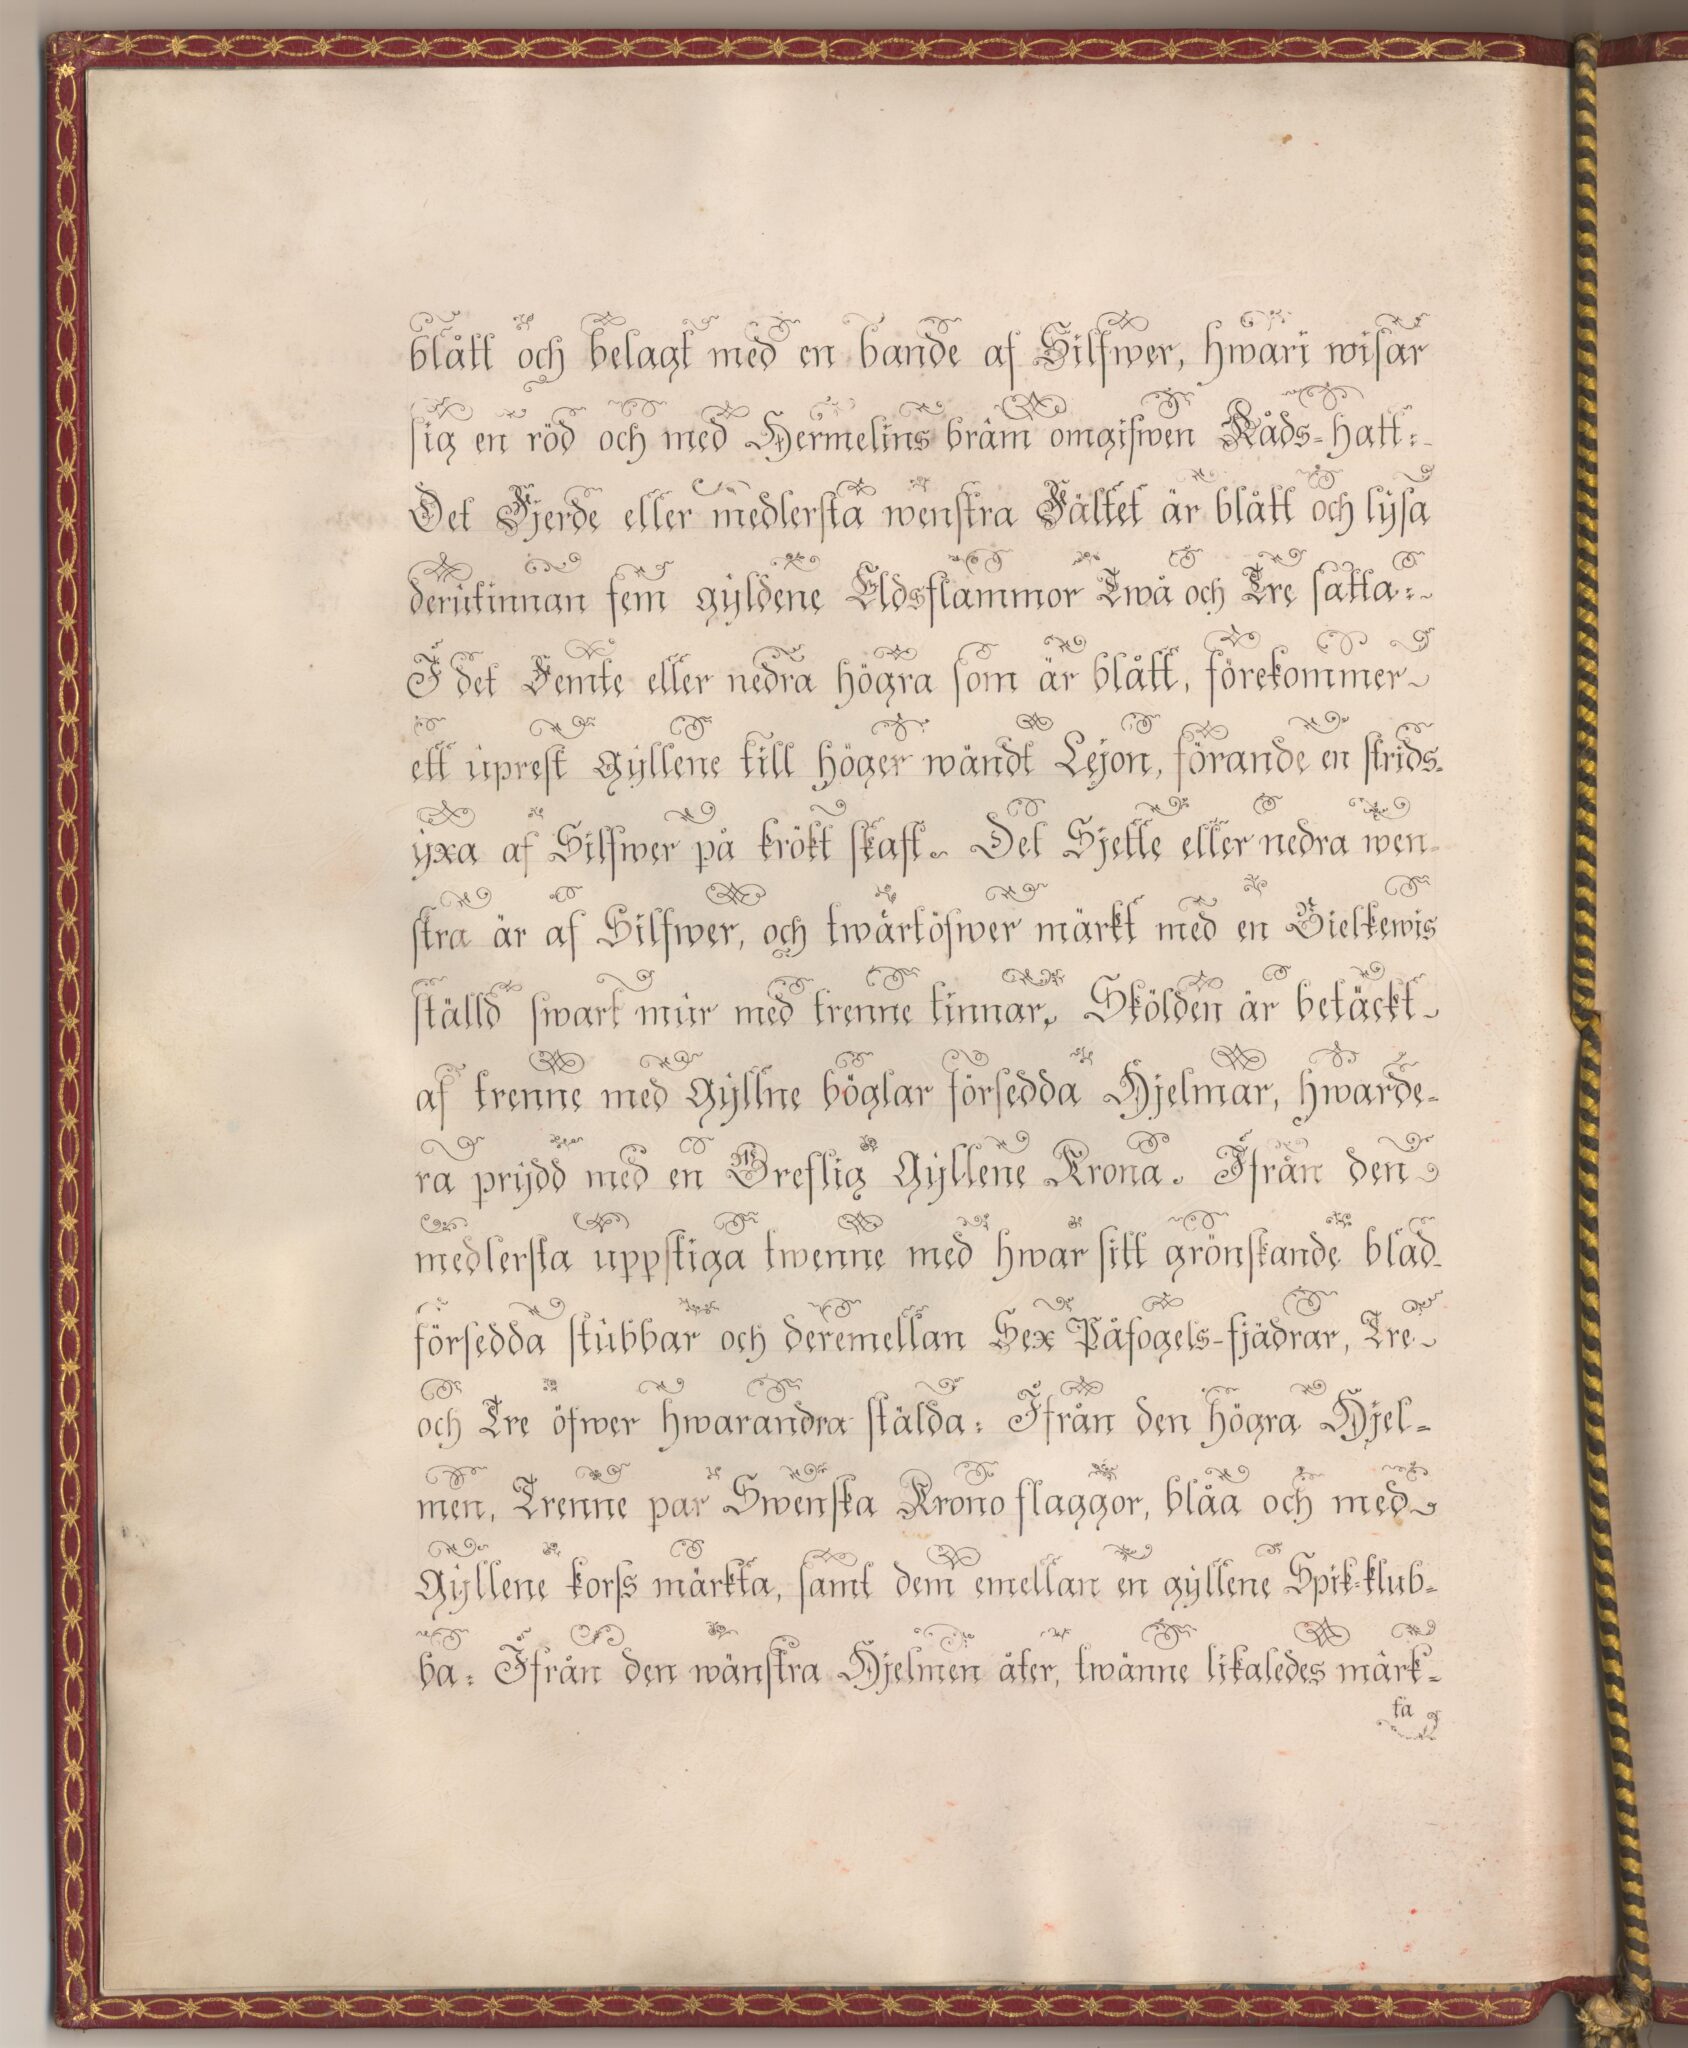 blått och belagt med en bande af Silfwer, hwari wisar
sig en röd och med Hermelins bräm omgifwen Råds-hatt:
Det Fjerde eller medlersta wenstra Fältet är blått och lysa
derutinnan fem gyldene Eldsflammor Twå och Tre satta:
I det Femte eller nedra högra som är blått, förekommer
ett uprest Gyllene till höger wändt Lejon, förande en strids-
yxa af Silfwer på krökt skaft. Det Sjette eller nedra wen-
stra är af Silfwer, och twärtöfwer märkt med en Bielkewis
ställd swart mur med trenne tinnar. Skölden är betäckt
af trenne med Gyllne böglar försedda Hjelmar, hwarde-
ra prydd med en Greflig Gyllene Krona. Ifrån den
medlersta uppstiga twenne med hwar sitt grönskande blad
försedda stubbar och deremellan Sex Påfogels-fjädrar, Tre
och Tre öfwer hwarandra stälda: Ifrån den högra Hjel-
men, Trenne par Swenska Krono flaggor, blåa och med
Gyllene korss märkta, samt dem emellan en gyllene Spik-klub-
ba: Ifrån den wänstra Hjelmen åter, twänne likaledes märk-
ta